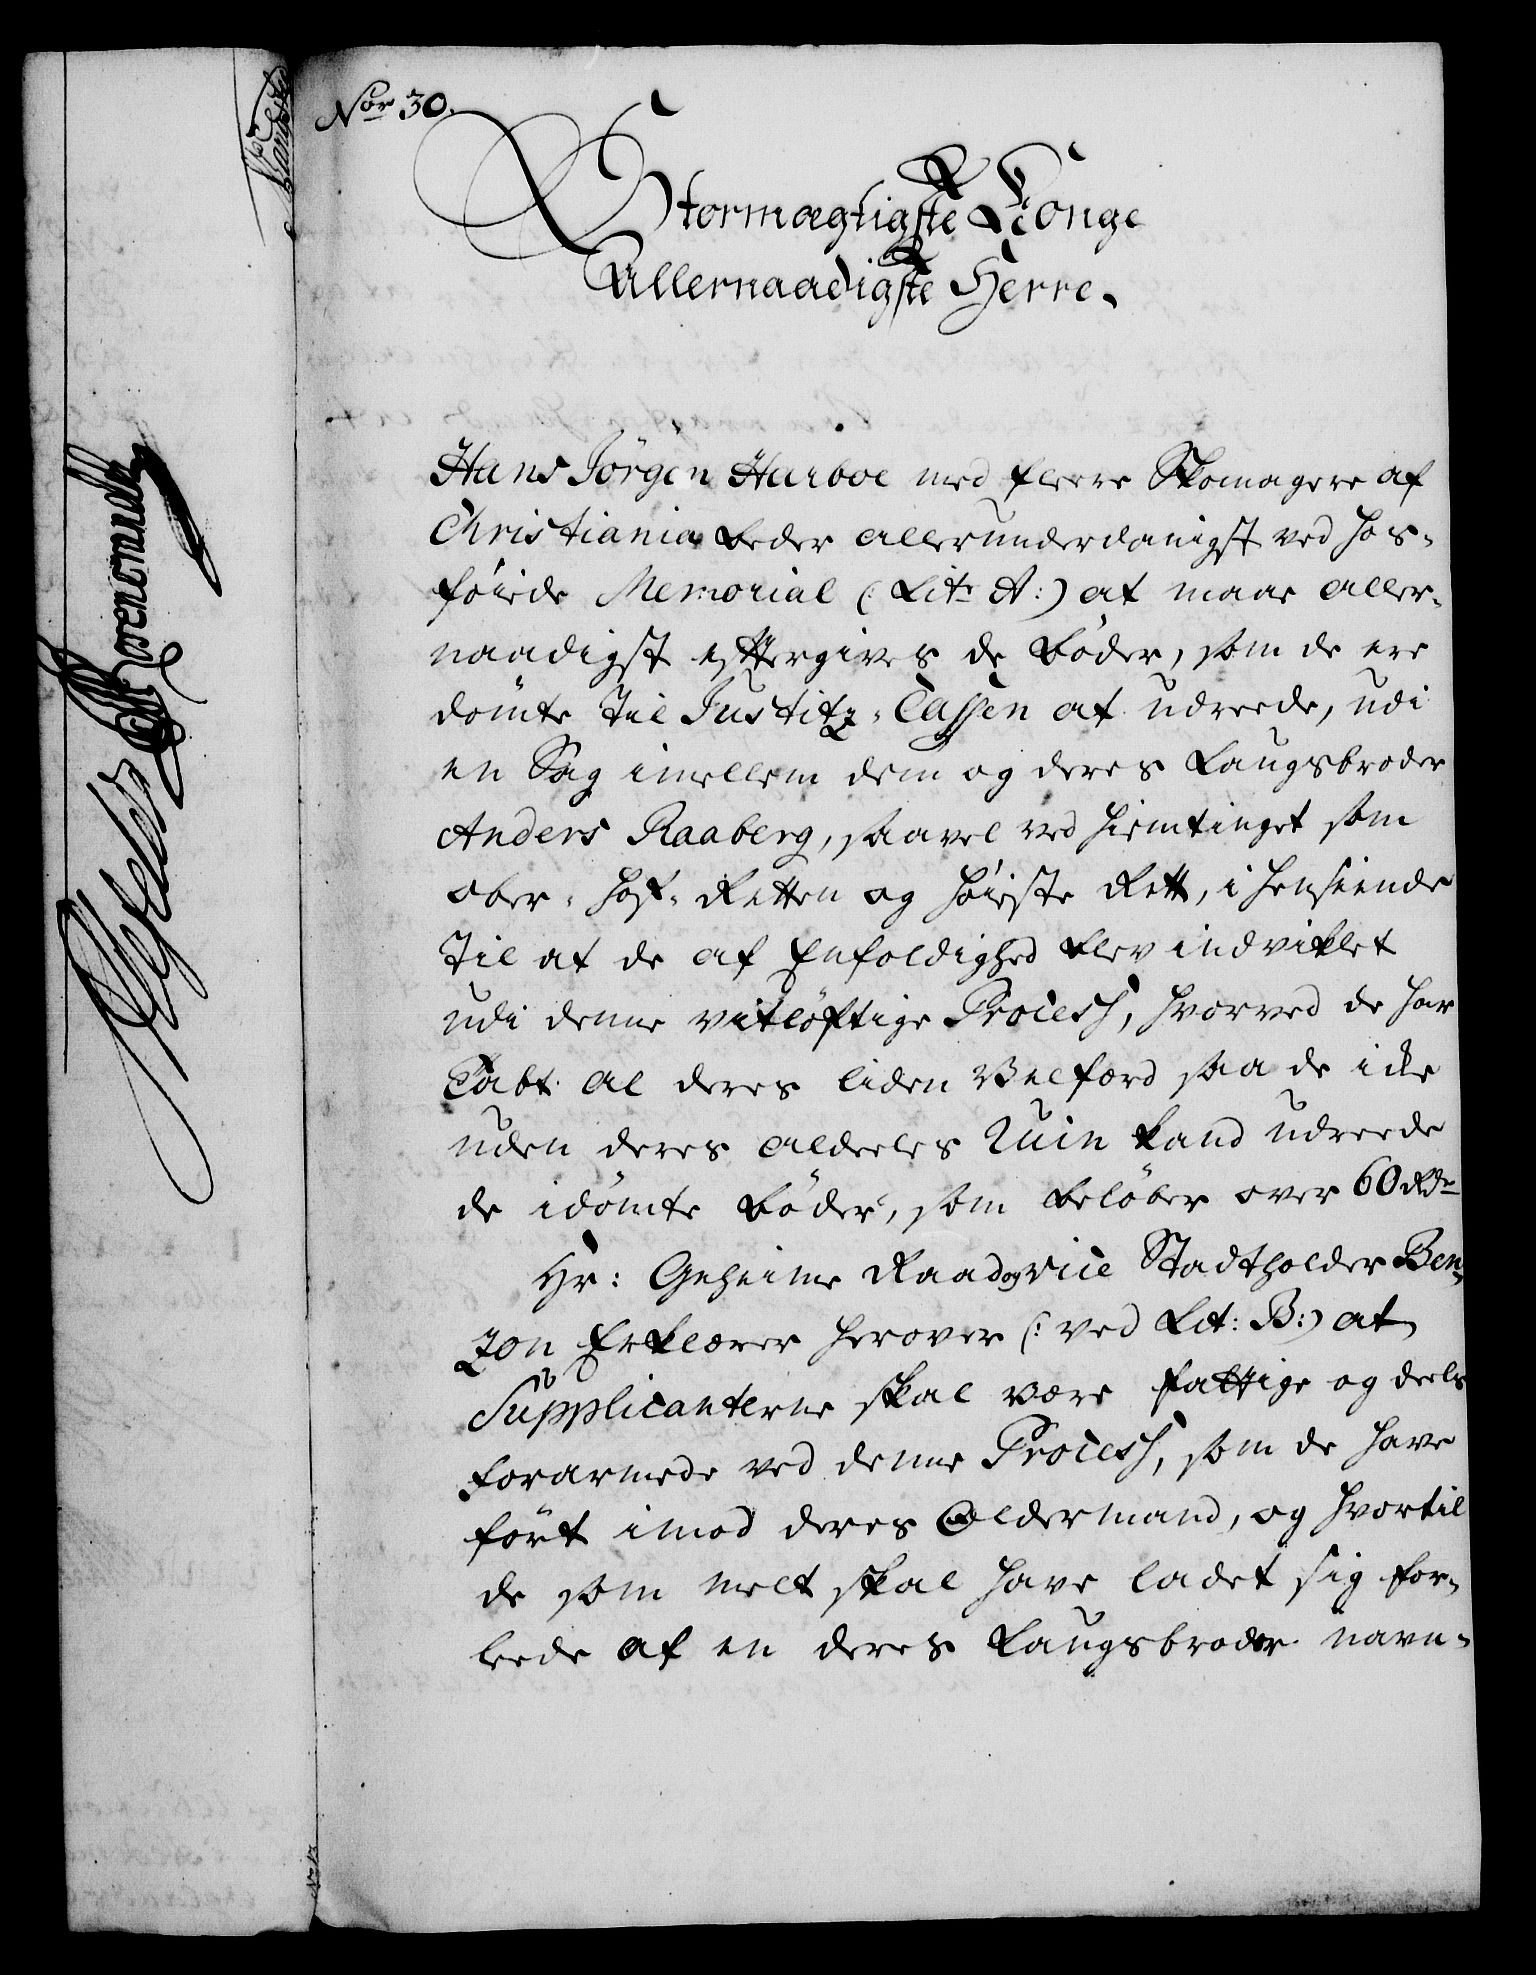 Nor 30.
Stormægtigste Konge
Allernaadigste Herre.
Hans Jörgen Harboe med fleere Skomagere af
Christiania beder allerunderdanigst ved hos-
föiede Memorial (: Litr A:) at maae aller-
naadigst eftergives de Böder, som de ere
dömte til Justitz-Cassen at udreede, udi
en Sag imellem dem og deres Laugsbroder
Anders Raaberg, saavel ved Hiemtinget som
Ober-Hof-Retten og Höieste Rett, i henseende
til at de af Eenfoldighed blev indviklet
udi denne vitlöftige Process, hvorved de har
Tabt al deres liden Velfærd saa de icke
uden deres aldeeles Ruin kand udreede
de idömte Böder, som belöber over 60 Rdr
Hr: Geheime Raad og Vice Stadtholder Ben-
zon Erklærer herover (: ved Lit: B:) at
Supplicanterne skal være fattige og deels
forarmede ved denne Process, som de have
fört imod deres Oldermand, og hvortil
de som melt skal have ladet sig for-
leede af en deres Laugsbroder navn-